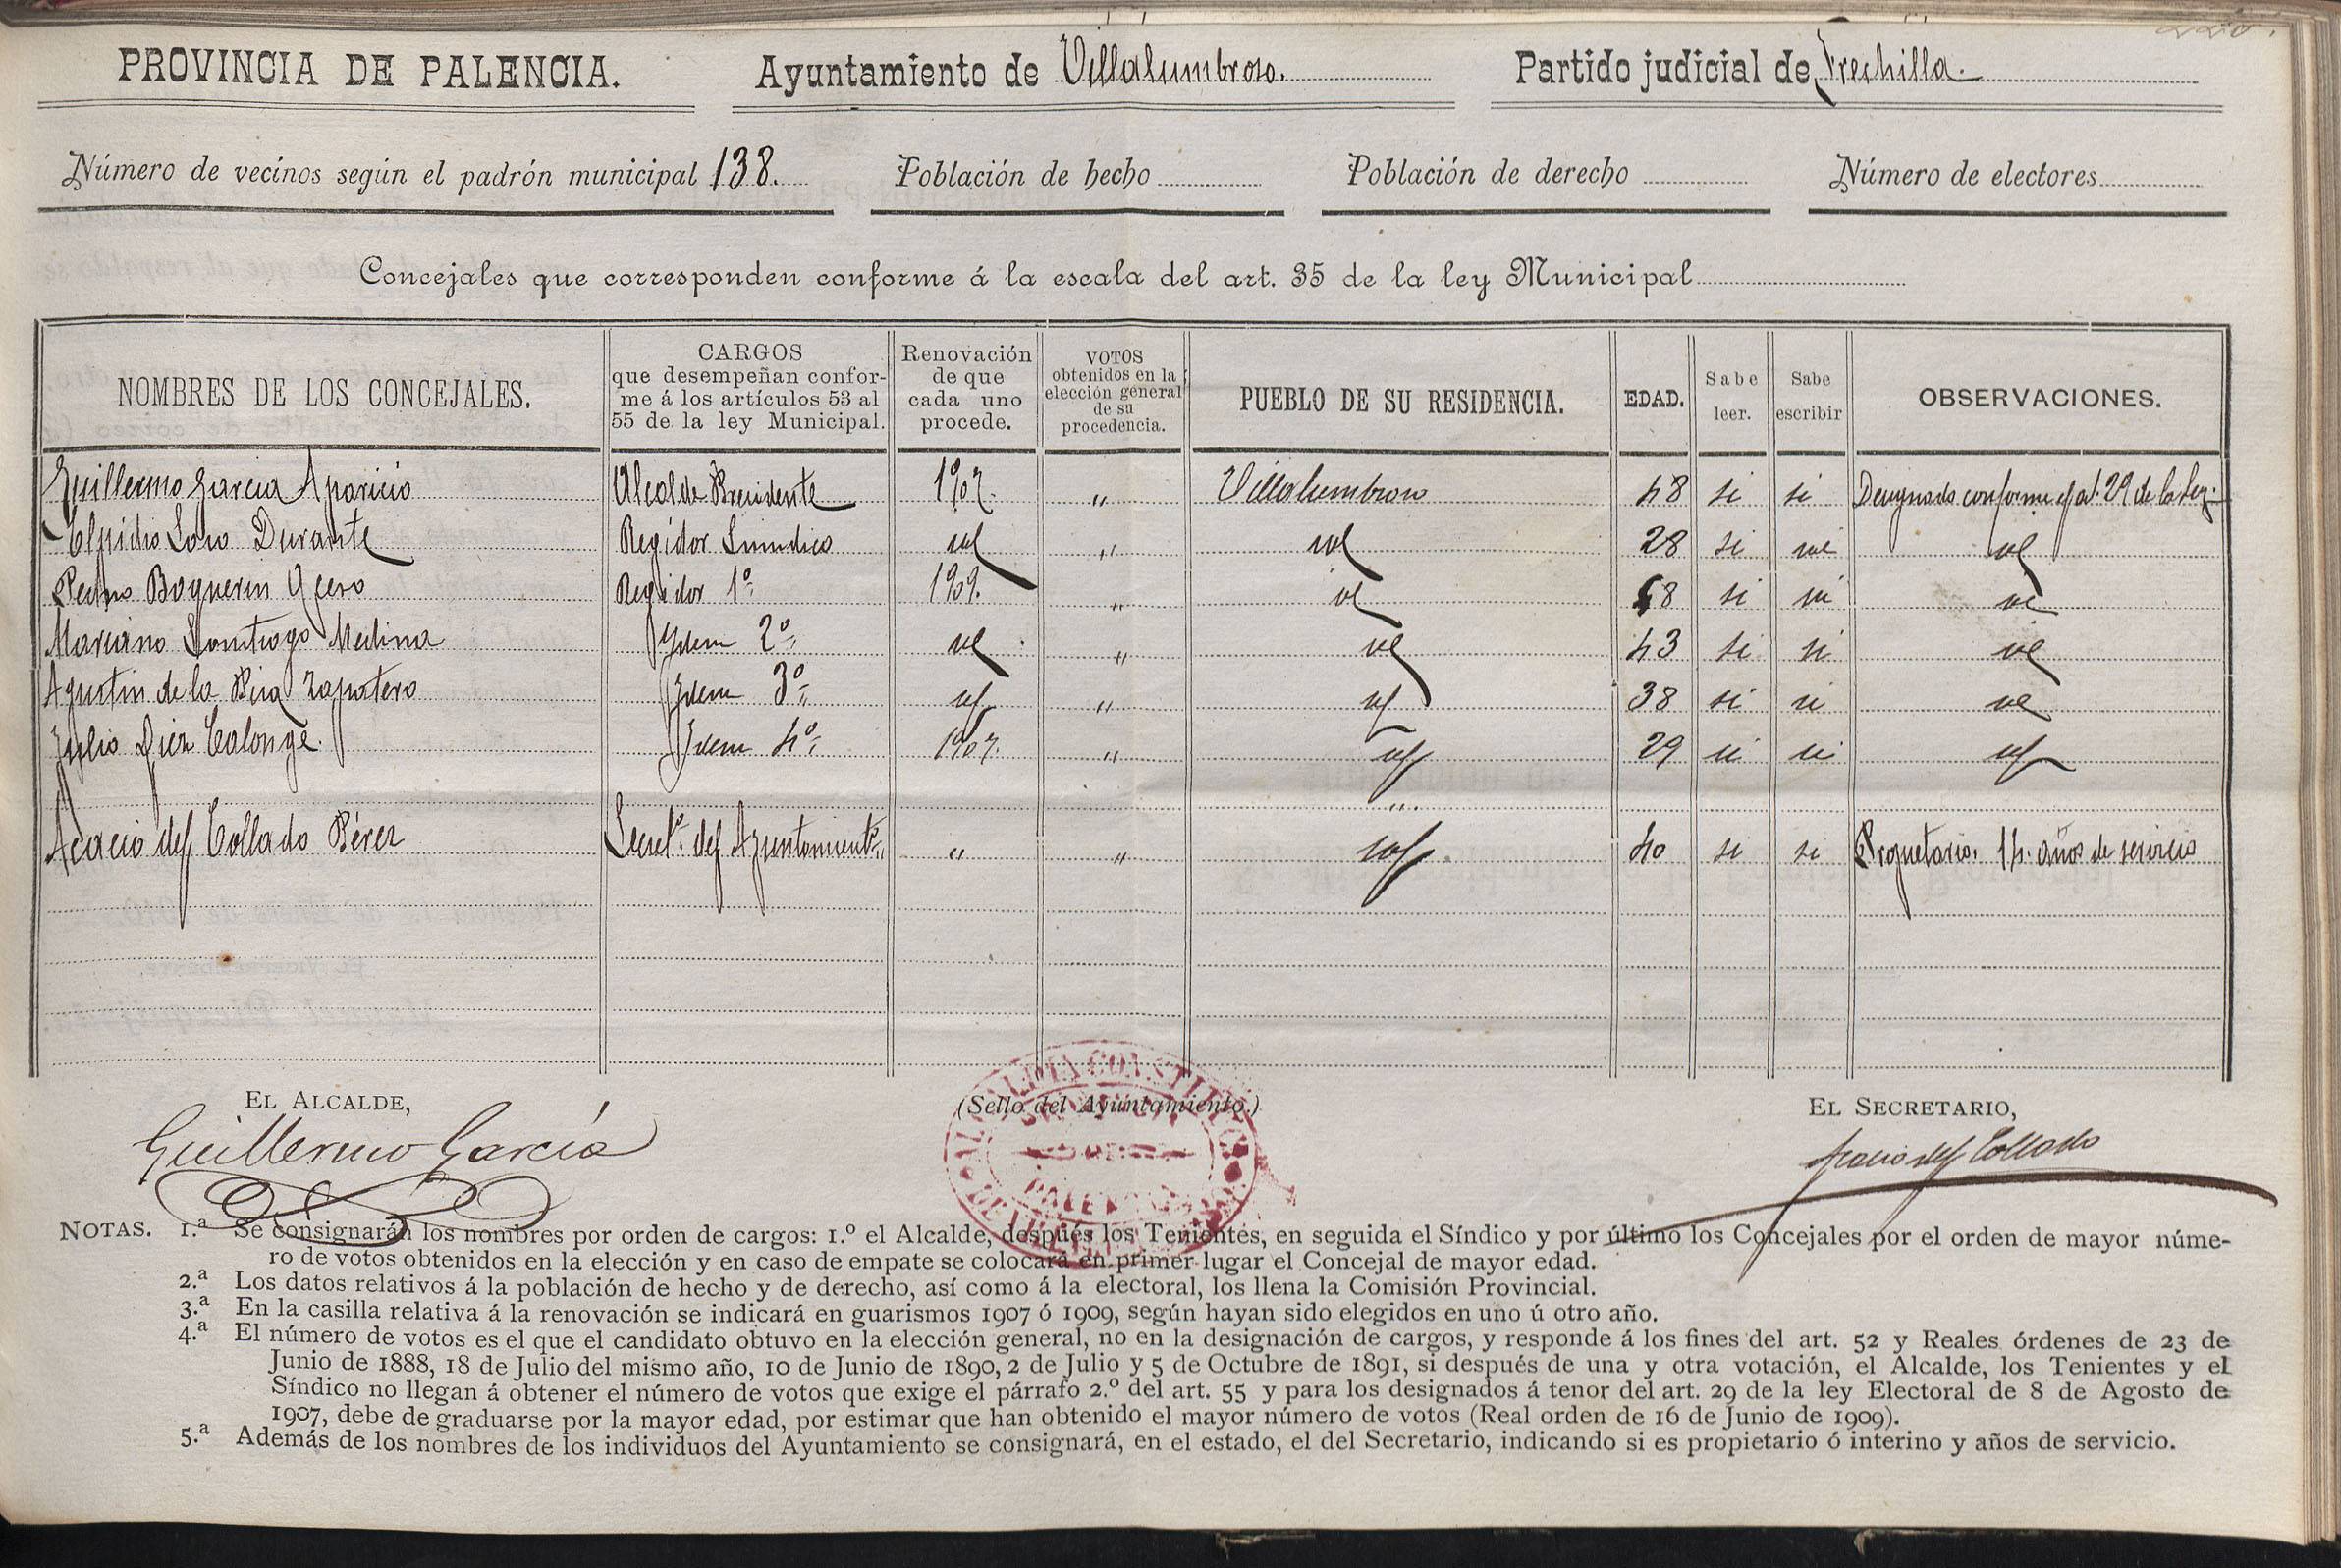 PROVINCIA DE PALENCIA. Ayuntamiento de Villalumbroso. Partido judicial de Frechilla.
Número de vecinos según el padrón municipal 138. Población de hecho Población de derecho Número de electores
Concejales que corresponden conforme á la escala del art. 35 de la ley Municipal
NOMBRES DE LOS CONCEJALES. CARGOS que desempeñan confor- me á los artículos 53 al 55 de la ley Municipal. Renovación de que cada uno procede. VOTOS obtenidos en la elección general de su procedencia. PUEBLO DE SU RESIDENCIA. EDAD. Sabe leer. Sabe escribir OBSERVACIONES.
Guillermo Garcia Aparicio Alcalde Presidente 1907. " Villalumbroso 48 si si Designado conforme al art. 29 de la Ley.
Elpidio Durante Regidor Sindico id " id 28 si id
Pedro Boguerin Regidor 1º 1909. " id 68 si si id
Marciano Santiago Medina Idem 2º id " id 43 si si id
Agustin de la Pisa Zapatero Idem 3º id " id 38 si si id
Julio Diez Calonge. Idem 4º 1907. " id 29 si si id
"
Acacio del Collado Pérez Secretº del Ayuntamientº " " id 40 si si Propietario. 14. años de servicio
EL ALCALDE, (Sello del Ayuntamiento.) EL SECRETARIO,
Guillermo García Acacio del Collado
NOTAS. 1.ª Se consignarán los nombres por orden de cargos: 1.º el Alcalde, después los Tenientes, en seguida el Síndico y por último los Concejales por el orden de mayor núme-
ro de votos obtenidos en la elección y en caso de empate se colocará en primer lugar el Concejal de mayor edad.
2.ª Los datos relativos á la población de hecho y de derecho, así como á la electoral, los llena la Comisión Provincial.
3.ª En la casilla relativa á la renovación se indicará en guarismos 1907 ó 1909, según hayan sido elegidos en uno ú otro año.
4.ª El número de votos es el que el candidato obtuvo en la elección general, no en la designación de cargos, y responde á los fines del art. 52 y Reales órdenes de 23 de
Junio de 1888, 18 de Julio del mismo año, 10 de Junio de 1890, 2 de Julio y 5 de Octubre de 1891, si después de una y otra votación, el Alcalde, los Tenientes y el
Síndico no llegan á obtener el número de votos que exige el párrafo 2.º del art. 55 y para los designados á tenor del art. 29 de la ley Electoral de 8 de Agosto de
1907, debe de graduarse por la mayor edad, por estimar que han obtenido el mayor número de votos (Real orden de 16 de Junio de 1909).
5.ª Además de los nombres de los individuos del Ayuntamiento se consignará, en el estado, el del Secretario, indicando si es propietario ó interino y años de servicio.